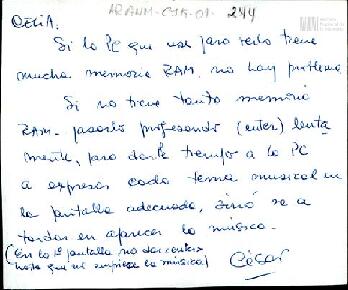 ARANM-CTR-01- 244
DELIA:
Si la PC que use para verlo tiene
mucha memoria RAM, no hay problema
Si no tiene tanta memoria
RAM- pasarlo presionando (enter) lenta
mente, para darle tiempo a la PC
a expresar cada tema musical en
la pantalla adecuada, sinó se a
tardar en aparecer la música.
(En la 1ª pantalla no dar enter
hasta que no empiece la música)
César